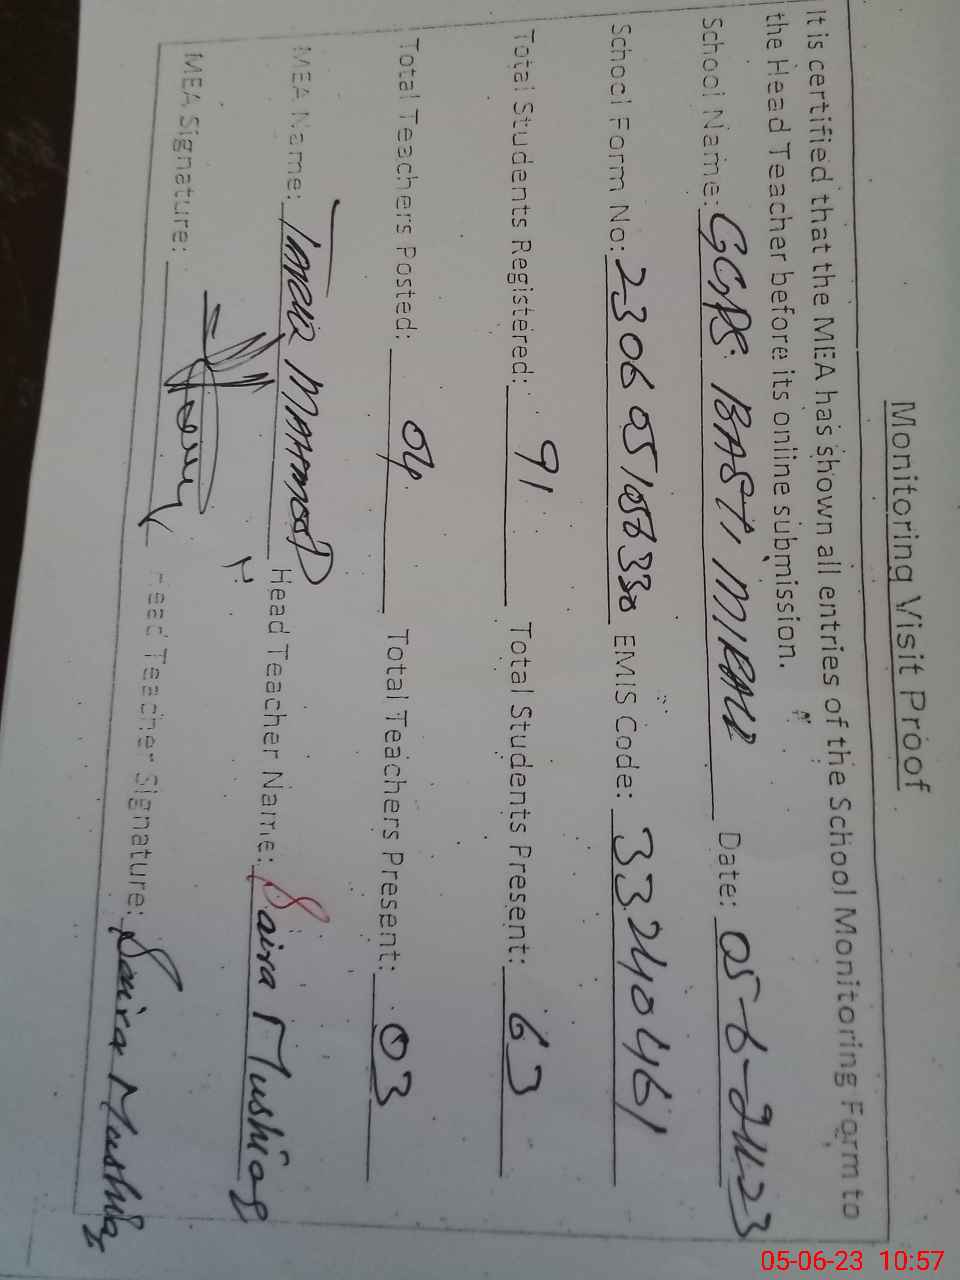 Monitoring Visit Proof
It is certified that the MEA has shown all entries of the School Monitoring Form to
the Head Teacher before its online submission.
School Name: GGPS BASTI MIRALI Date: 05-6-2023
School Form No: 23060510563 EMIS Code: 33240461
Total Students Registered: 91 Total Students Present: 63
Total Teachers Posted: 04 Total Teachers Present: 03
MEA Name: Head Teacher Name: Saira Mushtaq
MEA Signature: Head Teacher Signature: Saira Mushtaq
05-06-23 10:57